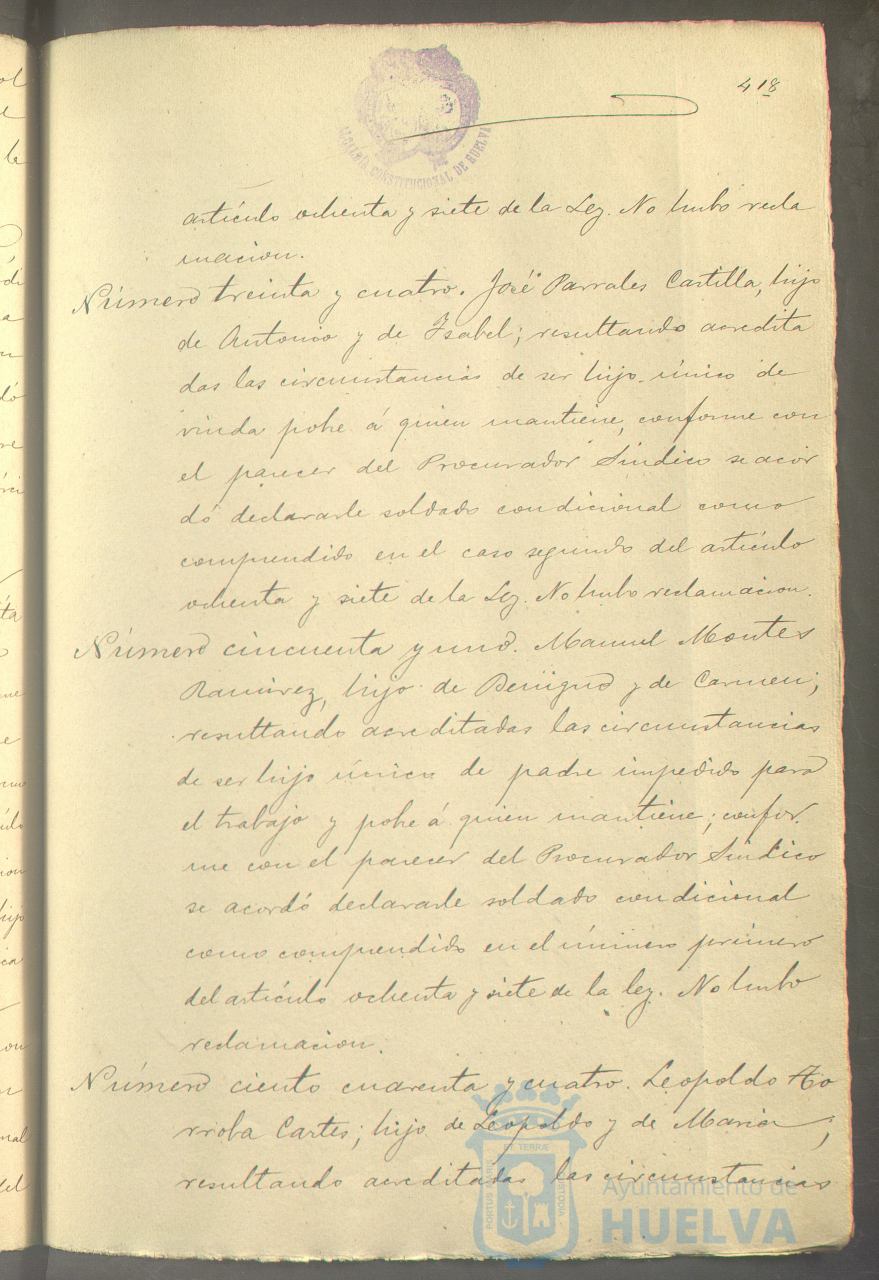 418
ALCALDIA CONSTITUCIONAL DE HUELVA
artículo ochenta y siete de la Ley. No hubo recla
macion.
Número treinta y cuatro. José Parrales Castilla, hijo
de Antonio y de Isabel; resultando acredita
das las circunstancias de ser hijo único de
viuda pobre á quien mantiene, conforme con
el parecer del Procurador Síndico se acor
dó declararle soldado condicional como
comprendido en el caso segundo del artículo
ochenta y siete de la Ley. No hubo reclamacion.
Número cincuenta y uno. Manuel Montes
Ramirez, hijo de Benigno y de Carmen;
resultando acreditadas las circunstancias
de ser hijo único de padre impedido para
el trabajo y pobre á quien mantiene; confor
me con el parecer del Procurador Síndico
se acordó declararle soldado condicional
como comprendido en el número primero
del artículo ochenta y siete de la ley. No hubo
reclamacion.
Número ciento cuarenta y cuatro. Leopoldo
rroba Cartes; hijo de Leopoldo y de Maria;
resultando acreditadas las circunstancias
PORTUS MARIS ET TERRÆ CUSTODIA
Ayuntamiento de
HUELVA